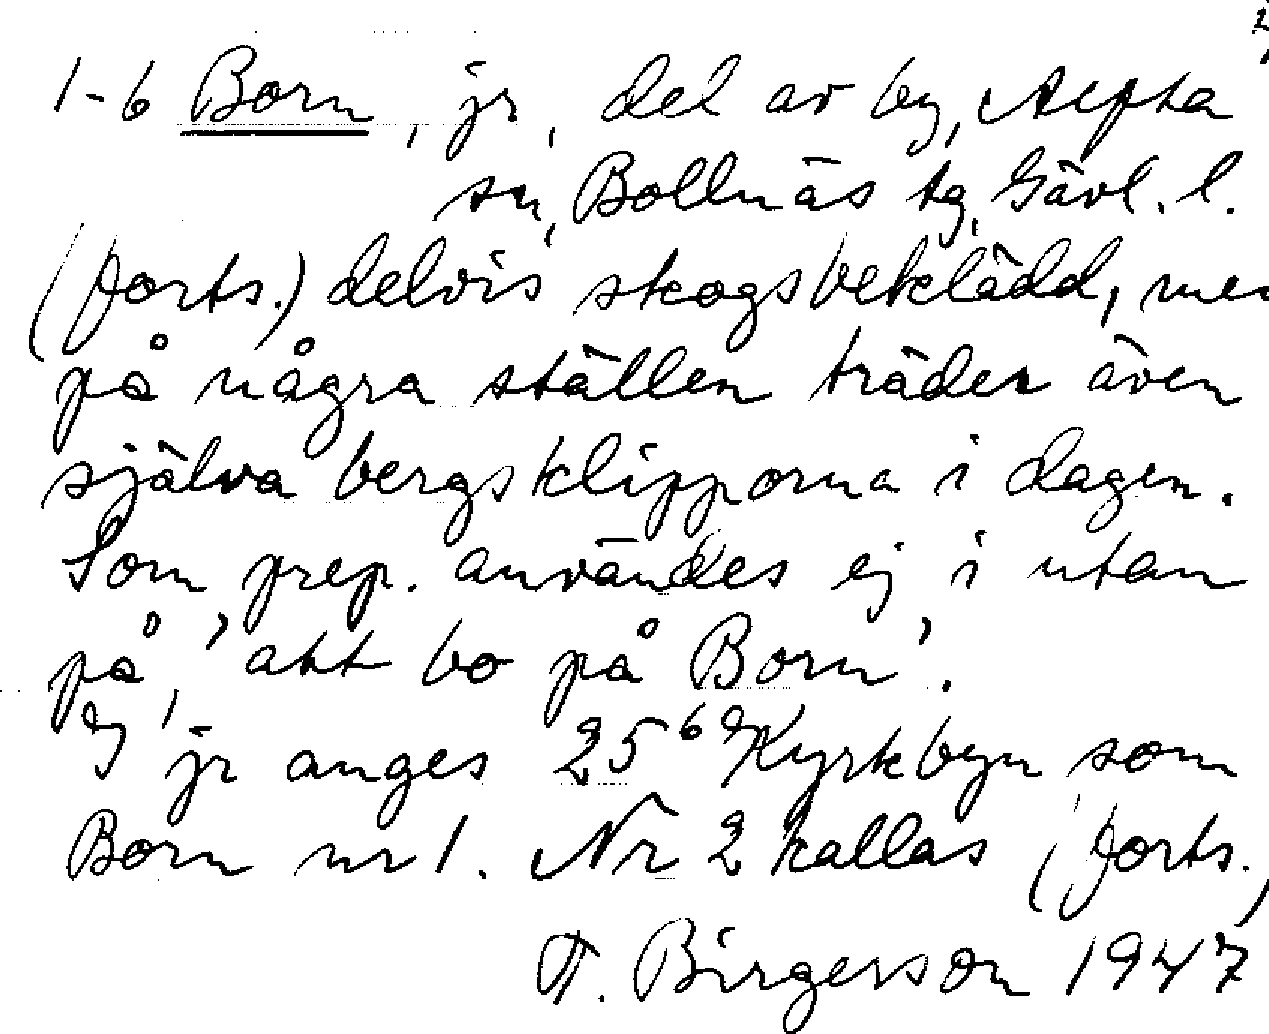 1-6 Born, jr, del av by, Alfta
sn, Bollnäs tg, Gävl. l.
(forts.) delvis skogsbeklädd, men
på några ställen träder även
själva bergsklipporna i dagen.
Som prep. användes ej i utan
på, 'att bo på Born'.
I jr anges 25⁶ Kyrkbyn som
Born nr 1. Nr 2 kallas (forts.)
F. Birgerson 1947